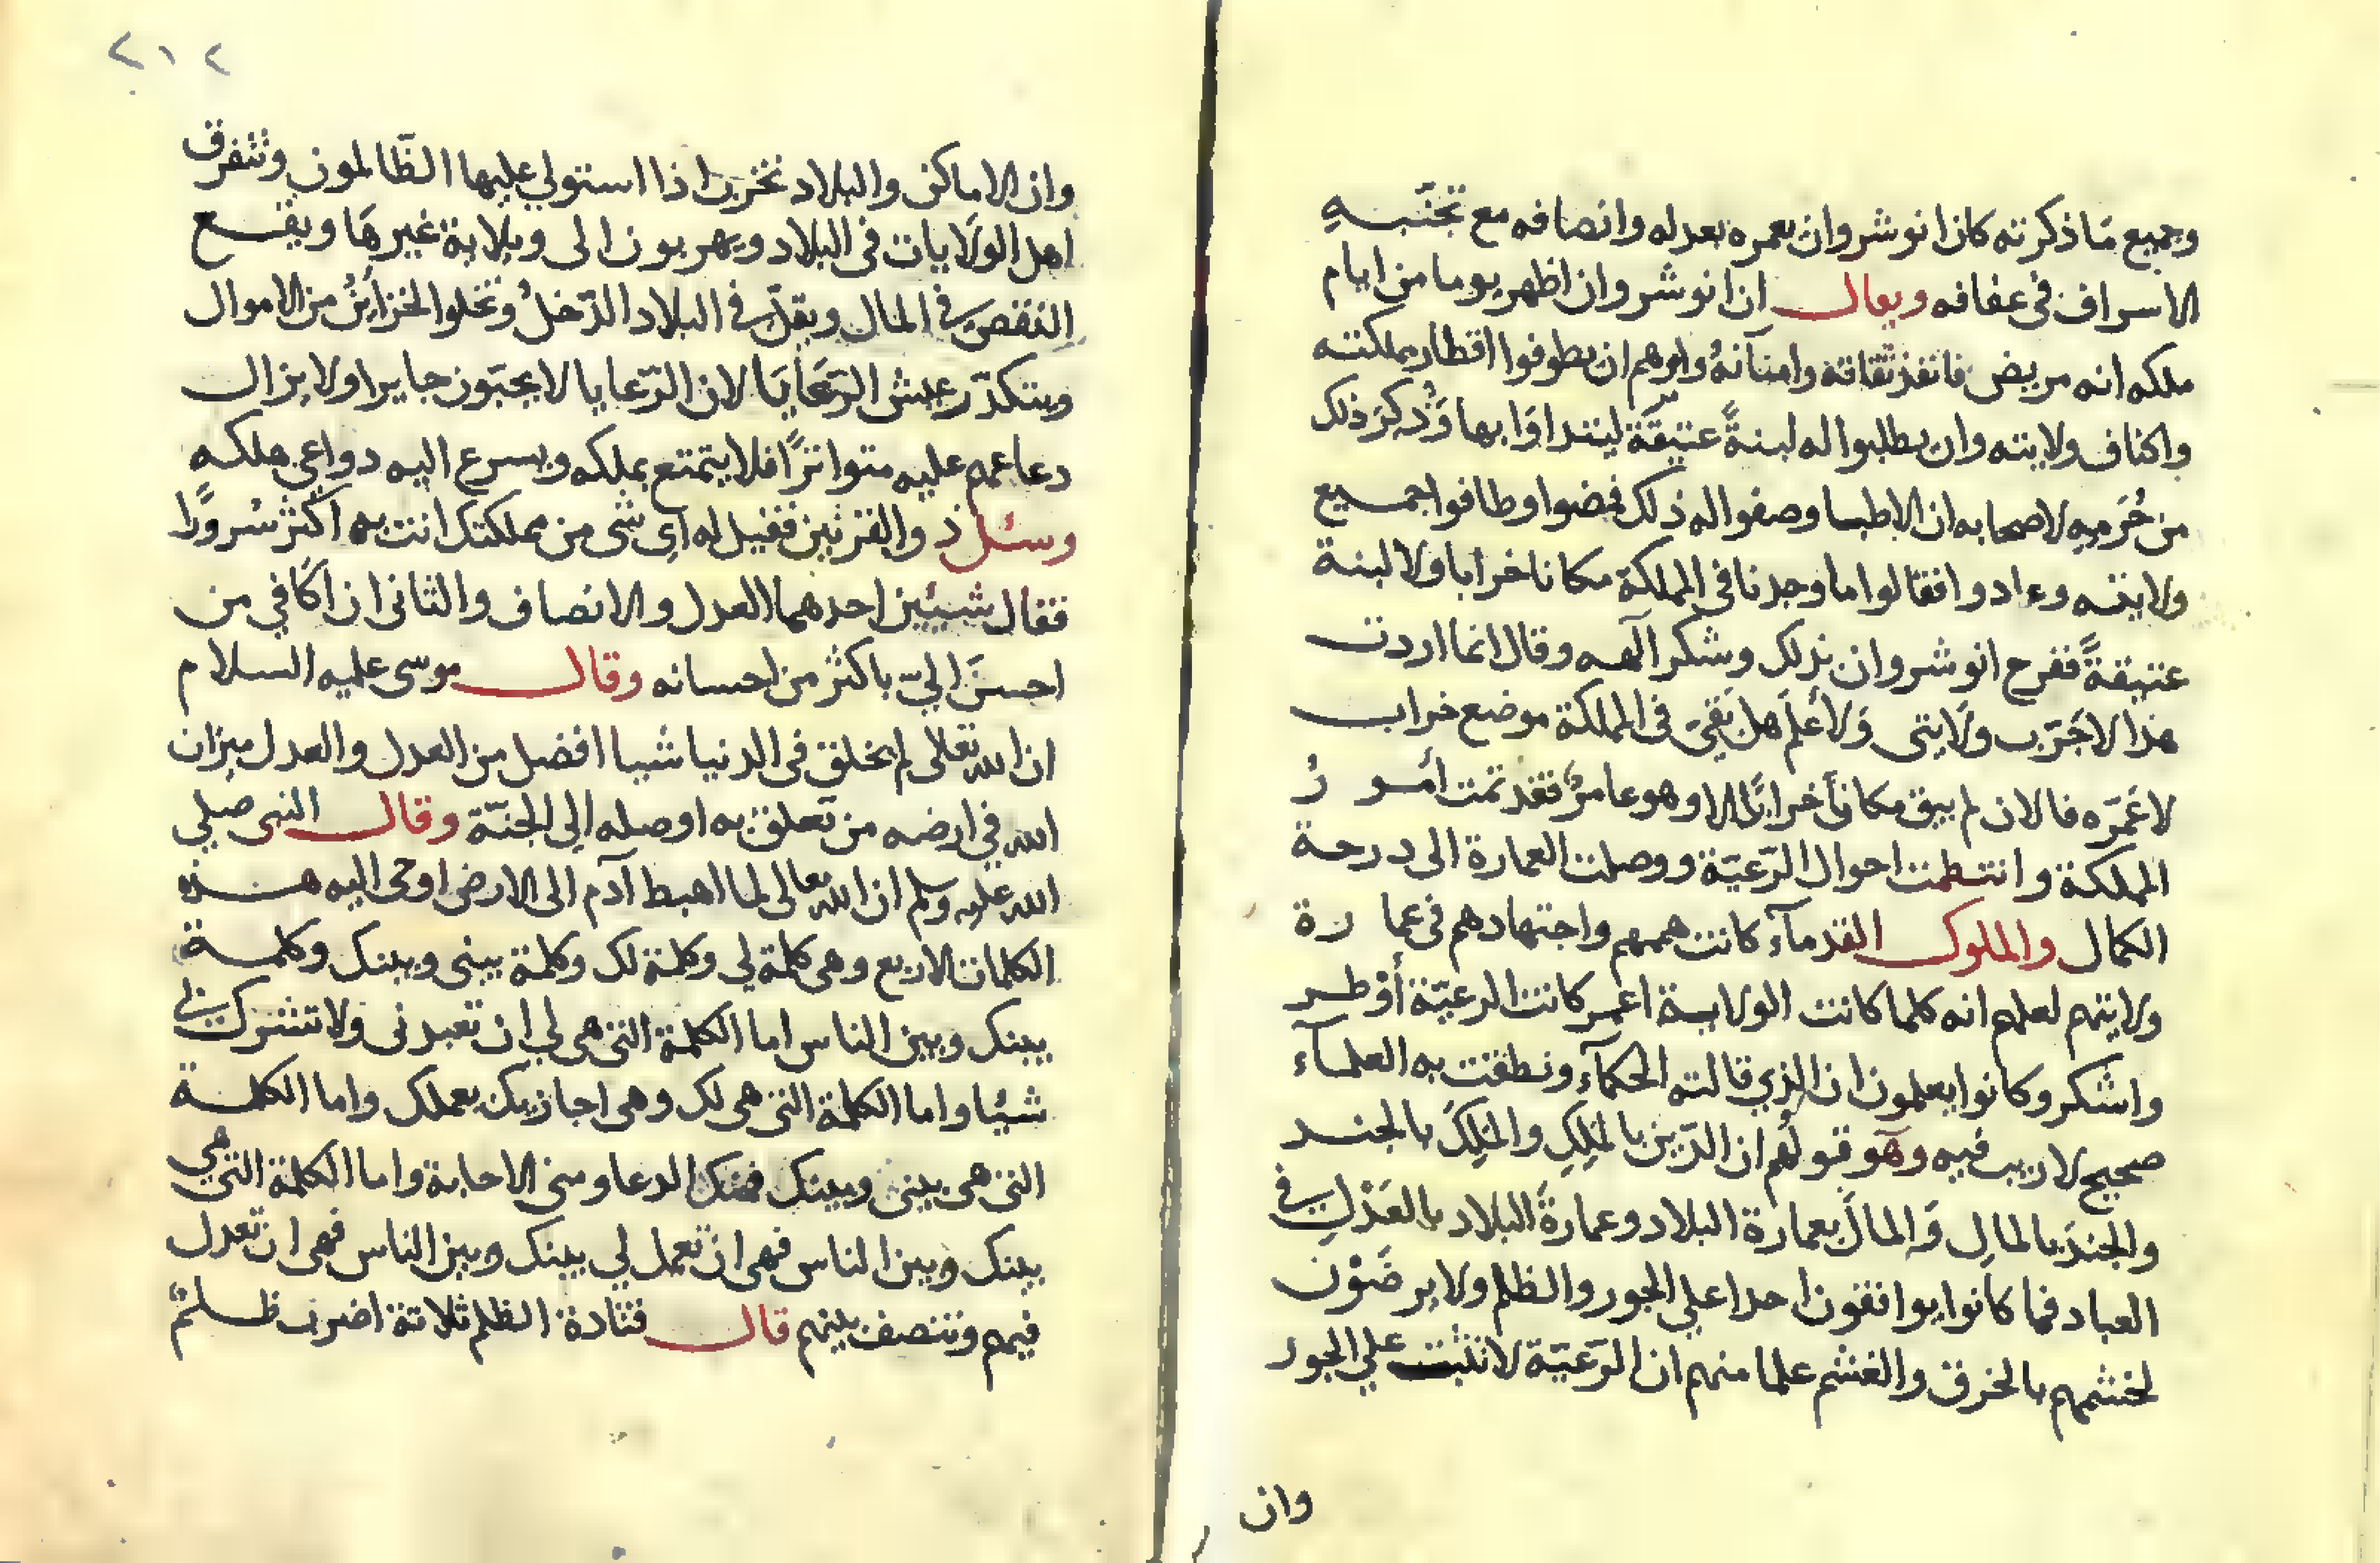 وجميع مَا ذكرته كان انوشروان يعمره بعدله وانصافه مع تجنّبهِ
الاسراف في عفافه ويقال ان انوشروان اظهر يوما من ايام
ملكه انه مريض فانفذ ثقاته وامنآنهُ وامرهم ان يطوفوا اقطار مملكته
واكناف ولايته وان يطلبوا له لبنةً عتيقة ليتداوَا بها وَذُكِرَ ذلك
من حُرَميه لاصحابه ان الاطبا وصفوا له ذلك فمضوا وطافوا جميع
ولايته وعادوا فقالوا ما وجدنا في المملكة مكانا خرابا ولا لبنة
عتيقةً ففرح انوشروان بذلك وشكر آلهه وقال انما اردت
هذا لاجَرّب ولَايتى وَلاعلَم هل بَقيَ في المملكة موضع خراب
لاعَمّره فالان لم يبق مكاناً خرابًا الا وهو عامرٌ فقد تمت امُور
المملكة وانتظمت احوال الرّعيّة ووصلت العمارة الى درجة
الكمال والملوك القدمآء كانت هممهم واجتهادهم في عمارة
ولايتهم لعلمهم انه كلما كانت الولاية اعمر كانت الرعيّة أوْطر
واشكر وكانوا يعلمون ان الذي قالته الحكمآء ونطقت به العلمآء
صحيح لا ريب فيه وهو قولُهم ان الدّين بالمَلِكِ والمَلِكَ بالجند
والجندَ بالمالِ وَالمالَ بعمارة البلاد وعمارةَ البلاد بالعَدْلِ في
العباد فما كانوا يوافقون احدا علي الجور والظلم ولا يرضَوْن
لخشمهم بالخرق والغشم علما منهم ان الرّعيّة لا تثبت علي الجور
وان
٢١٢
وان الاماكن والبلاد تخرب اذا استولي عليها الظّالمون وتتفرق
اهل الولَايات في البلاد ويهربون الى ويلاية غيرهَا ويقع
النقص في المال ويقلّ في البلاد الدّخلُ وتخلوا الخزائنُ من الاموال
ويتكدّر عيش الرّعَايَا لان الرّعايا لا يحبّون جايرا ولا يزال
دعاءهم عليه متواترًا فلا يتمتع بملكه ويسرع اليه دواعي هلكه
وسئل ذوالقرنين فقيل له اى شى من مملكتك انت به اكثر سُرورًا
فقال شيئين احدهما العدل والانصاف والثانى ان اكافي من
احسنَ الىّ باكثر من احسانه وقال موسى عليه السلام
ان الله تعالى لم يخلق في الدنيا شيا افضل من العدل والعدل ميزان
الله في ارضه من تَعلق به اوصله الي الجنّة وقال النبى صلي
الله عليه وسلم ان الله تعالى لما اهبط آدم الى الارض اوحى اليه هذه
الكلمات الاربع وهى كلمة لي وكلمة لك وكلمة بينى وبينك وكلمة
بينك وبين الناس اما الكلمة التى هى لي ان تعبدنى ولا تشرك بى
شيئا واما الكلمة التى هى لك وهى اجازيك بعملك واما الكلمة
التى هى بينى وبينك فمنك الدعا ومنى الاجابة واما الكلمة التى هي
بينك وبين الناس فهى ان تعمل لي بينك وبين الناس فهى ان تعدل
فيهم وتنصف بينهم قال قتادة الظلم ثلاثة اضرب ظلمٌ